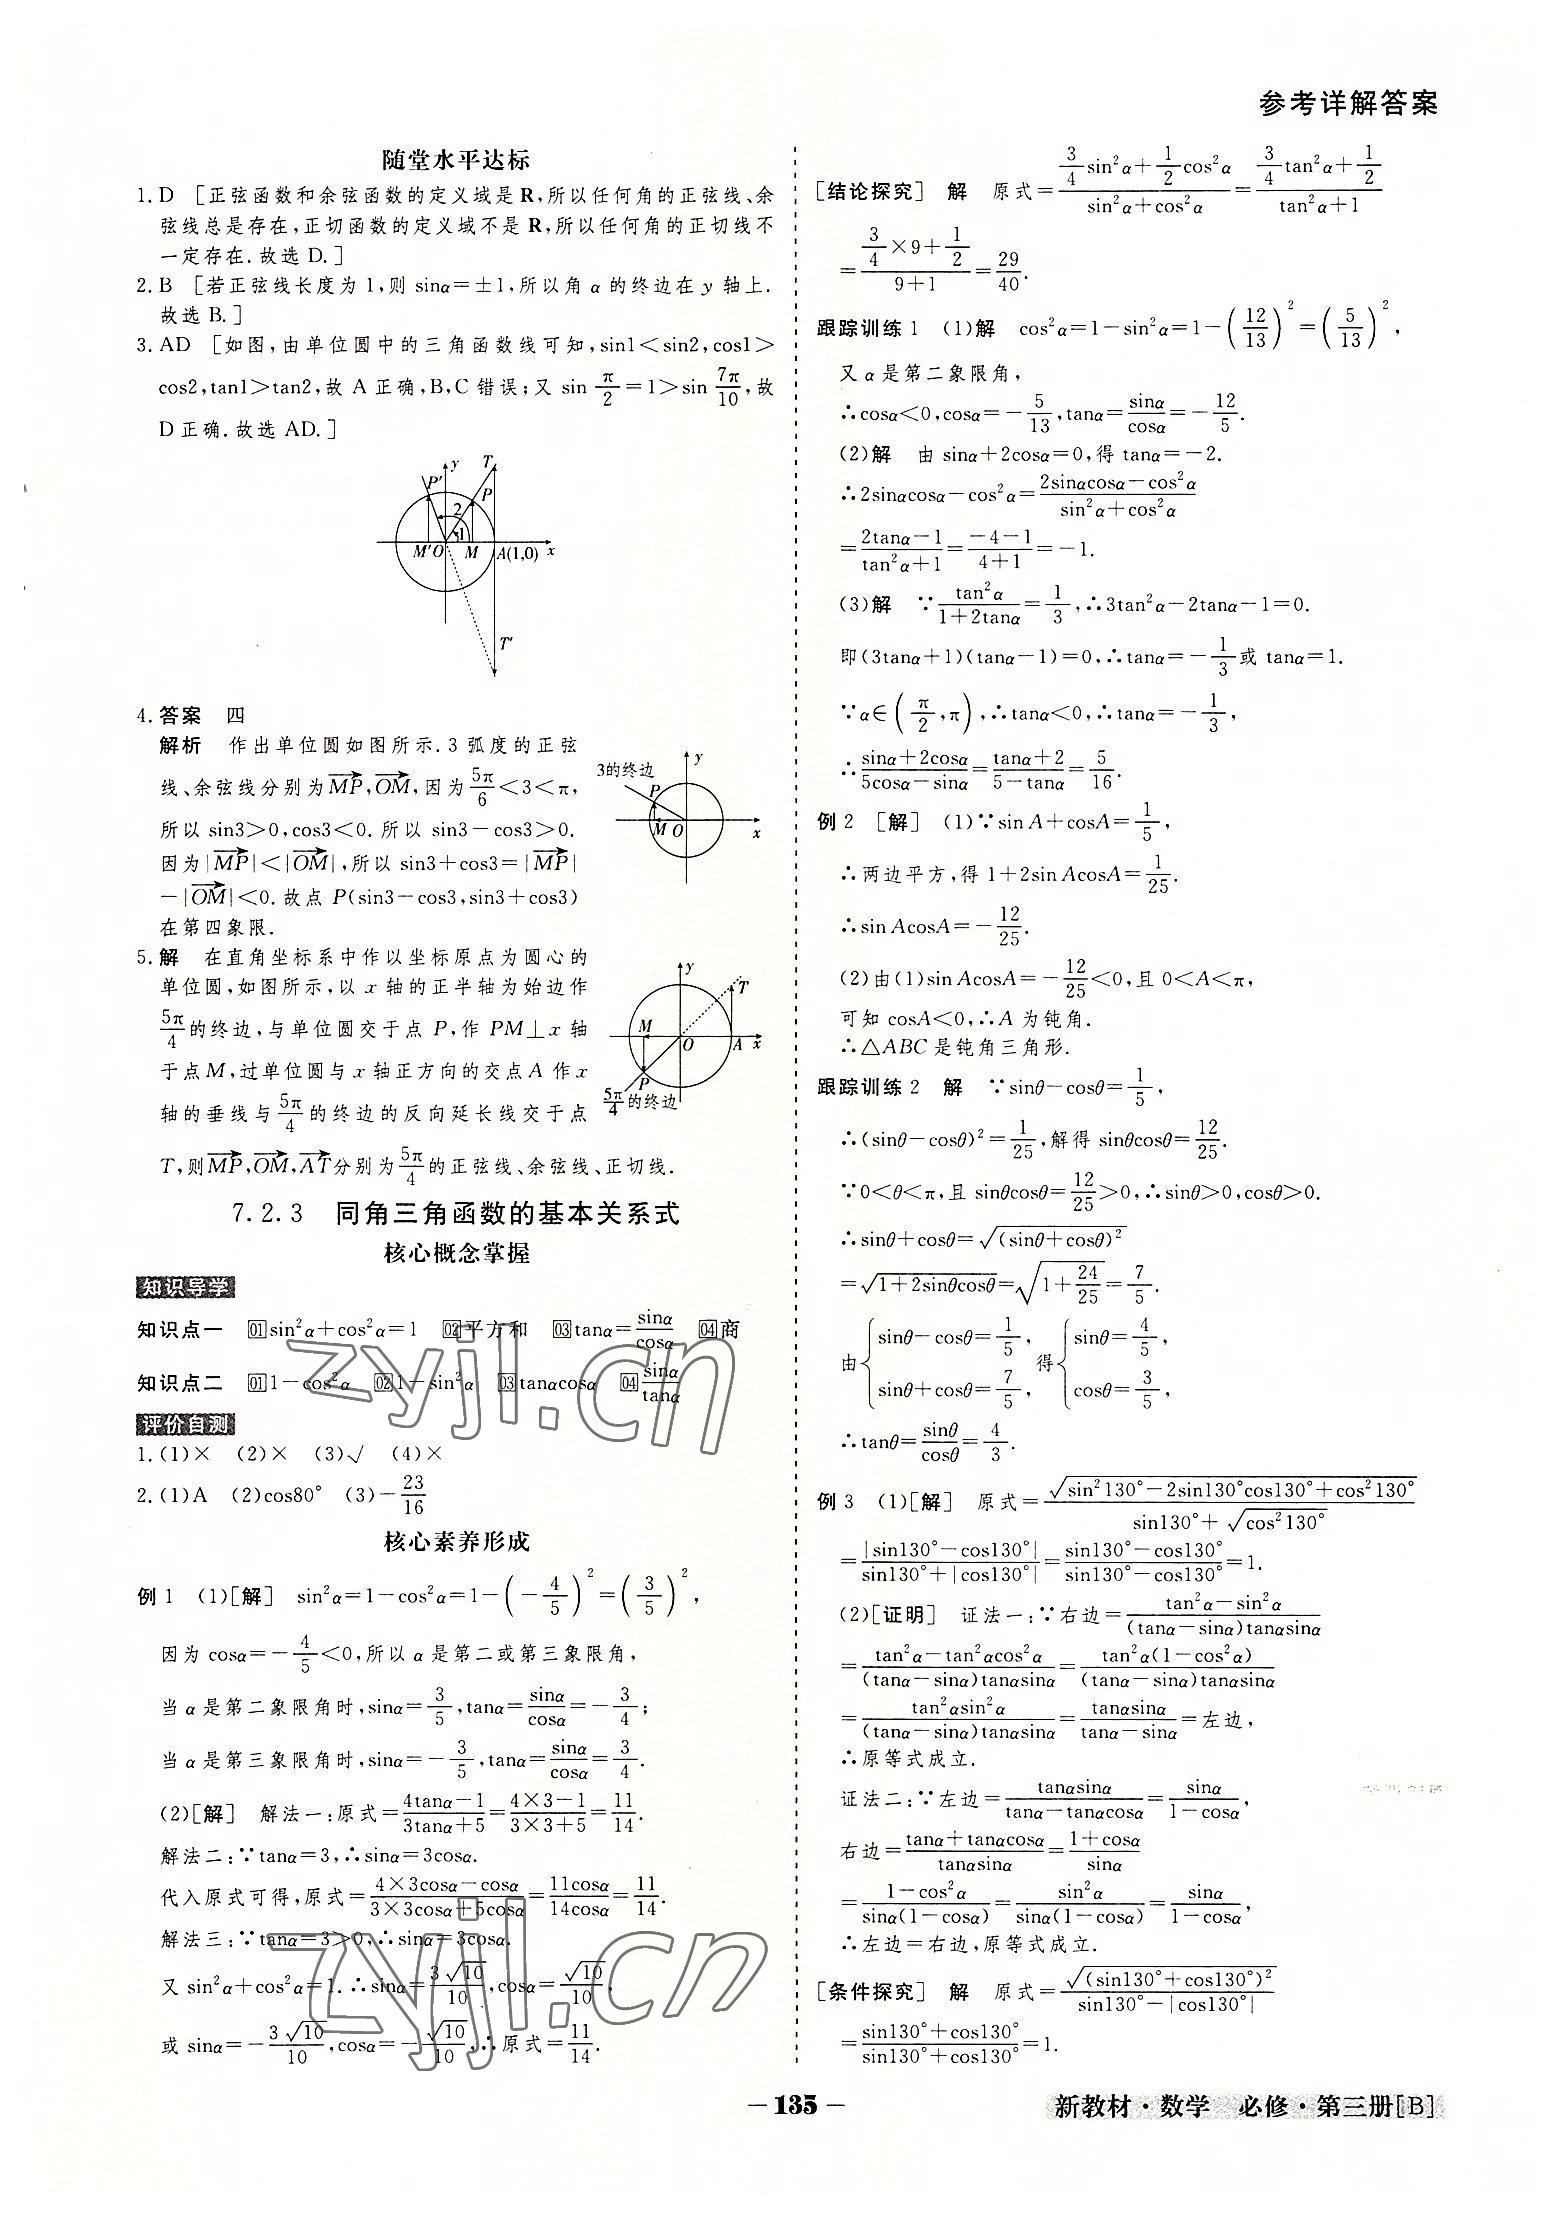 参考详解答案
随堂水平达标
1. D [正弦函数和余弦函数的定义域是 R,所以任何角的正弦线、余
弦线总是存在,正切函数的定义域不是 R,所以任何角的正切线不
一定存在.故选 D.]
2. B [若正弦线长度为 1,则 sinα=±1,所以角 α 的终边在 y 轴上.
故选 B.]
3. AD [如图,由单位圆中的三角函数线可知,sin1<sin2,cos1>
cos2,tan1>tan2,故 A 正确,B,C 错误;又 sin π/2=1>sin 7π/10,故
D正确.故选 AD.]
P' y T P 2 1 M'O M A(1,0) x T'
4. 答案 四
解析 作出单位圆如图所示.3 弧度的正弦
线、余弦线分别为MP,OM,因为5π/6<3<π,
所以 sin3>0,cos3<0.所以 sin3-cos3>0.
因为|MP|<|OM|,所以 sin3+cos3=|MP|
-|OM|<0.故点 P(sin3-cos3,sin3+cos3)
在第四象限.
3的终边 P y M O x
5. 解 在直角坐标系中作以坐标原点为圆心的
单位圆,如图所示,以 x 轴的正半轴为始边作
5π/4的终边,与单位圆交于点 P,作 PM⊥x 轴
于点M,过单位圆与x轴正方向的交点A 作x
轴的垂线与5π/4的终边的反向延长线交于点
T,则MP,OM,AT分别为5π/4的正弦线、余弦线、正切线.
y T M O A x P 5π/4的终边
7.2.3 同角三角函数的基本关系式
核心概念掌握
知识导学
知识点一 01 sin²α+cos²α=1 02平方和 03 tanα=sinα/cosα 04商
知识点二 01 1-cos²α 02 1-sin²α 03 tanαcosα 04 sinα/tanα
评价自测
1. (1)× (2)× (3)√ (4)×
2. (1)A (2)cos80° (3)-23/16
核心素养形成
例 1 (1)[解] sin²α=1-cos²α=1-(-4/5)²=(3/5)²,
因为 cosα=-4/5<0,所以 α 是第二或第三象限角,
当 α 是第二象限角时,sinα=3/5,tanα=sinα/cosα=-3/4;
当 α 是第三象限角时,sinα=-3/5,tanα=sinα/cosα=3/4.
(2)[解] 解法一:原式=(4tanα-1)/(3tanα+5)=(4×3-1)/(3×3+5)=11/14.
解法二:∵tanα=3,∴sinα=3cosα.
代入原式可得,原式=(4×3cosα-cosα)/(3×3cosα+5cosα)=11cosα/14cosα=11/14.
解法三:∵tanα=3>0,∴sinα=3cosα.
又 sin²α+cos²α=1.∴sinα=3√10/10,cosα=√10/10,
或 sinα=-3√10/10,cosα=-√10/10,∴原式=11/14.
[结论探究] 解 原式=(3/4sin²α+1/2cos²α)/(sin²α+cos²α)=(3/4tan²α+1/2)/(tan²α+1)
=(3/4×9+1/2)/(9+1)=29/40.
跟踪训练 1 (1)解 cos²α=1-sin²α=1-(12/13)²=(5/13)²,
又 α 是第二象限角,
∴cosα<0,cosα=-5/13,tanα=sinα/cosα=-12/5.
(2)解 由 sinα+2cosα=0,得 tanα=-2.
∴2sinαcosα-cos²α=(2sinαcosα-cos²α)/(sin²α+cos²α)
=(2tanα-1)/(tan²α+1)=(-4-1)/(4+1)=-1.
(3)解 ∵tan²α/(1+2tanα)=1/3,∴3tan²α-2tanα-1=0.
即(3tanα+1)(tanα-1)=0,∴tanα=-1/3或 tanα=1.
∵α∈(π/2,π),∴tanα<0,∴tanα=-1/3,
∴(sinα+2cosα)/(5cosα-sinα)=(tanα+2)/(5-tanα)=5/16.
例 2 [解] (1)∵sinA+cosA=1/5,
∴两边平方,得 1+2sinAcosA=1/25.
∴sinAcosA=-12/25.
(2)由(1)sinAcosA=-12/25<0,且 0<A<π,
可知 cosA<0,∴A 为钝角.
∴△ABC 是钝角三角形.
跟踪训练 2 解 ∵sinθ-cosθ=1/5,
∴(sinθ-cosθ)²=1/25,解得 sinθcosθ=12/25.
∵0<θ<π,且 sinθcosθ=12/25>0,∴sinθ>0,cosθ>0.
∴sinθ+cosθ=√(sinθ+cosθ)²
=√(1+2sinθcosθ)=√(1+24/25)=7/5.
由{sinθ-cosθ=1/5, sinθ+cosθ=7/5, 得{sinθ=4/5, cosθ=3/5,
∴tanθ=sinθ/cosθ=4/3.
例 3 (1)[解] 原式=√(sin²130°-2sin130°cos130°+cos²130°)/(sin130°+√cos²130°)
=|sin130°-cos130°|/(sin130°+|cos130°|)=(sin130°-cos130°)/(sin130°-cos130°)=1.
(2)[证明] 证法一:∵右边=(tan²α-sin²α)/((tanα-sinα)tanαsinα)
=(tan²α-tan²αcos²α)/((tanα-sinα)tanαsinα)=tan²α(1-cos²α)/((tanα-sinα)tanαsinα)
=tan²αsin²α/((tanα-sinα)tanαsinα)=tanαsinα/(tanα-sinα)=左边,
∴原等式成立.
证法二:∵左边=tanαsinα/(tanα-tanαcosα)=sinα/(1-cosα),
右边=(tanα+tanαcosα)/(tanαsinα)=(1+cosα)/sinα
=(1-cos²α)/(sinα(1-cosα))=sin²α/(sinα(1-cosα))=sinα/(1-cosα),
∴左边=右边,原等式成立.
[条件探究] 解 原式=√(sin130°+cos130°)²/(sin130°-|cos130°|)
=(sin130°+cos130°)/(sin130°+cos130°)=1.
- 135 -
新教材·数学 必修·第三册[B]
zyjl.cn
zyjl.cn